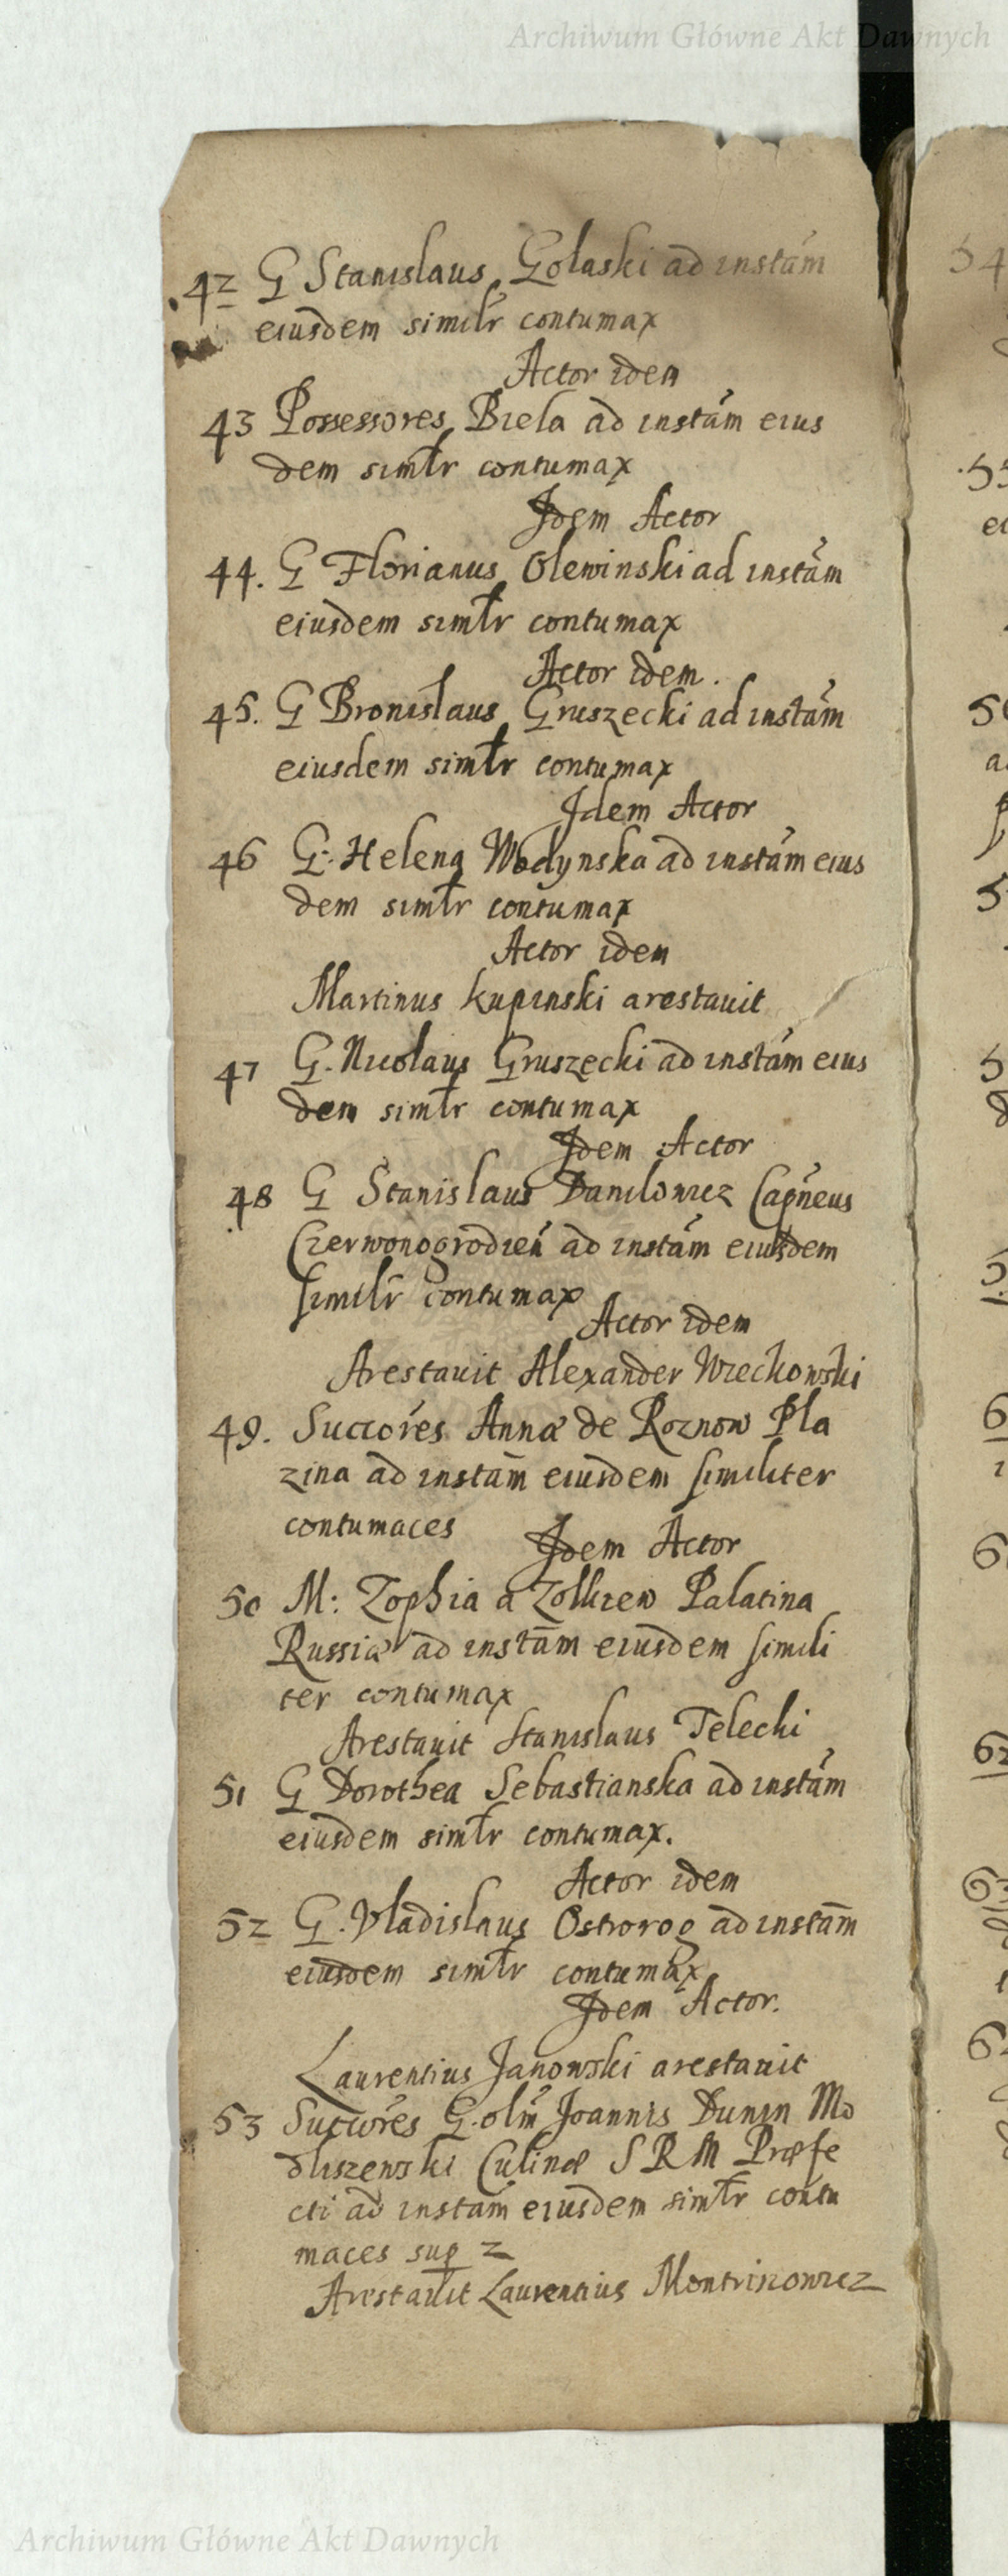 Archiwum Główne Akt Dawnych
42 G Stanislaus Golaski ad instãm
eiusdem similr contumax
Actor idem
43 Possessores Biela ad instãm eius
dem simlr contumax
Idem Actor
44. G Florianus Olewinski ad instãm
eiusdem simlr contumax
Actor idem.
45. G Bronislaus Gruszecki ad instãm
eiusdem simlr contumax
Idem Actor
46 G. Helena Wodynska ad instãm eius
dem simlr contumax
Actor idem
Martinus Kupinski arestauit
47 G. Nicolaus Gruszecki ad instãm eius
dem simlr contumax
Idem Actor
48 G Stanislaus Danilowicz Capneus
Czerwonogrodień ad instãm eiusdem
similr contumax
Actor idem
Arestauit Alexander Wiechowski
49. Succores Annæ de Roznow Pla
zina ad instãm eiusdem similiter
contumaces
Idem Actor
50 M: Zophia a Zolkiew Palatina
Russiæ ad instãm eiusdem simili
ter contumax
Arestauit Stanislaus Telecki
51 G Dorothea Sebastianska ad instãm
eiusdem simlr contumax.
Actor idem
52 G. Vladislaus Ostrorog ad instãm
eiusdem simlr contumax
Idem Actor.
Laurentius Janowski arestauit
53 Succores G. olim Joannis Dunin Mo
dliszewski Culinæ S R M Præfe
cti ad instam eiusdem simlr contu
maces sup 2
Arestauit Laurentius
Archiwum Główne Akt Dawnych